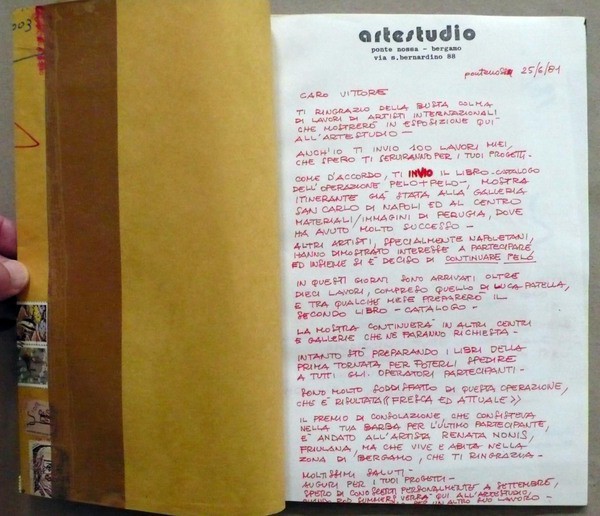 003
artestudio
ponte nossa - bergamo
via s.bernardino 88
25/6/81
CARO VITTORE
TI RINGRAZIO DELLA BUSTA COLMA
DI LAVORI DI ARTISTI INTERNAZIONALI
CHE MOSTRERÒ IN ESPOSIZIONE QUI
ALL'ARTESTUDIO -
ANCH'IO TI INVIO 100 LAVORI MIEI,
CHE SPERO TI SERVIRANNO PER I TUOI PROGETTI.
COME D'ACCORDO, TI INVIO IL LIBRO-CATALOGO
DELL'OPERAZIONE PELO+PELO-, MOSTRA
ITINERANTE GIÀ STATA ALLA GALLERIA
SAN CARLO DI NAPOLI ED AL CENTRO
MATERIALI/IMMAGINI DI PERUGIA, DOVE
HA AVUTO MOLTO SUCCESSO -
ALTRI ARTISTI, SPECIALMENTE NAPOLETANI,
HANNO DIMOSTRATO INTERESSE A PARTECIPARE
ED INSIEME SI È DECISO DI CONTINUARE PELO
IN QUESTI GIORNI SONO ARRIVATI OLTRE
DIECI LAVORI, COMPRESO QUELLO DI LUCA PATELLA,
E TRA QUALCHE MESE PREPARERÒ IL
SECONDO LIBRO - CATALOGO -
LA MOSTRA CONTINUERÀ IN ALTRI CENTRI
E GALLERIE CHE NE FARANNO RICHIESTA -
INTANTO STÒ PREPARANDO I LIBRI DELLA
PRIMA TORNATA PER POTERLI SPEDIRE
A TUTTI GLI OPERATORI PARTECIPANTI -
SONO MOLTO SODDISFATTO DI QUESTA OPERAZIONE,
CHE È RISULTATA «FRESCA ED ATTUALE»
IL PREMIO DI CONSOLAZIONE, CHE CONSISTEVA
NELLA TUA BARBA PER L'ULTIMO PARTECIPANTE,
È ANDATO ALL'ARTISTA RENATA NONIS,
FRIULANA, MA CHE VIVE E ABITA NELLA
ZONA DI BERGAMO, CHE TI RINGRAZIA -
MOLTISSIMI SALUTI -
AUGURI PER I TUOI PROGETTI -
SPERO DI CONOSCERTI PERSONALMENTE A SETTEMBRE,
VERRÀ QUI ALL'ARTESTUDIO,
PER UN ALTRO SUO LAVORO -